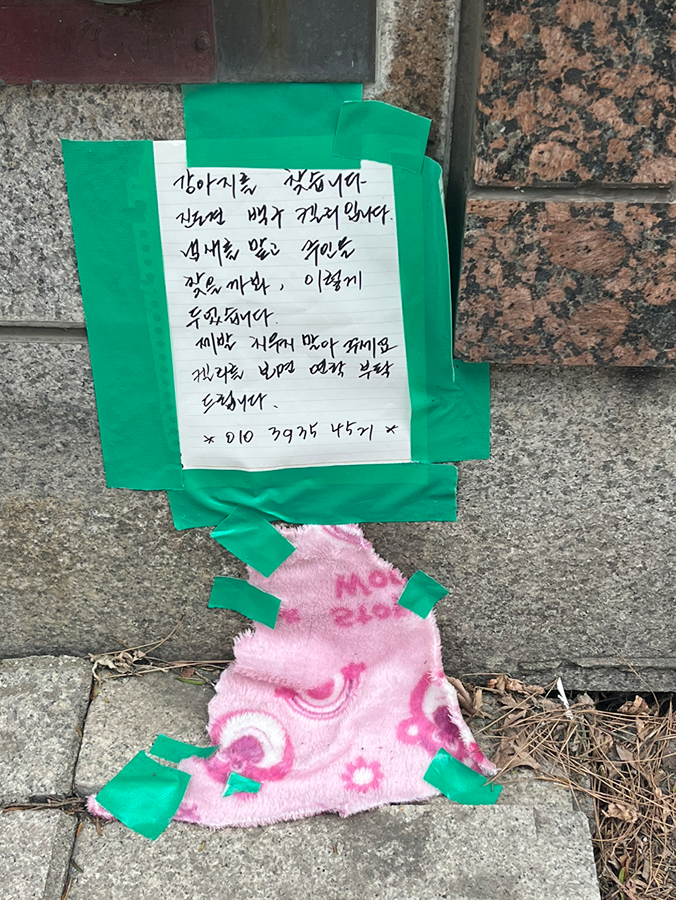 강아지를 찾습니다
진도견 백구 켈리입니다.
냄새를 맡고 주인을
찾을까봐, 이렇게
두었습니다.
제발 치우지 말아 주세요
켈리를 보면 연락 부탁
드립니다.
* 010 3935 4571 *